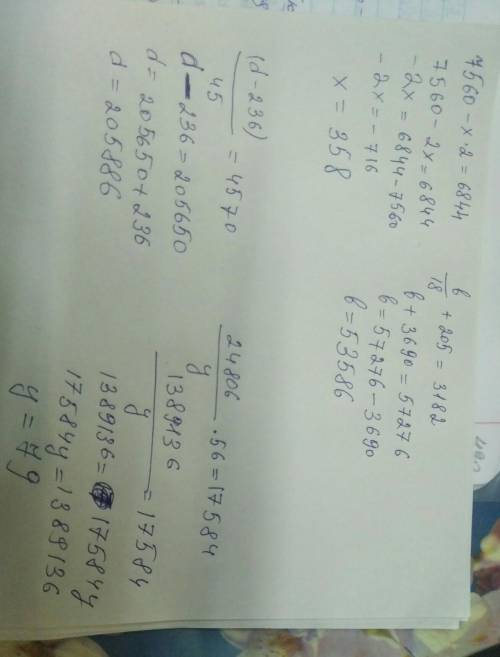 7560 - x · 2 = 6844
7560 - 2x = 6844
- 2x = 6844 - 7560
- 2x = - 716
x = 358
b/18 + 205 = 3182
b + 3690 = 57276
b = 57276 - 3690
b = 53586
(d - 236)/45 = 4570
d - 236 = 205650
d = 205650 + 236
d = 205886
24806/y · 56 = 17584
1389136/y = 17584
1389136 = 17584y
17584y = 1389136
y = 79